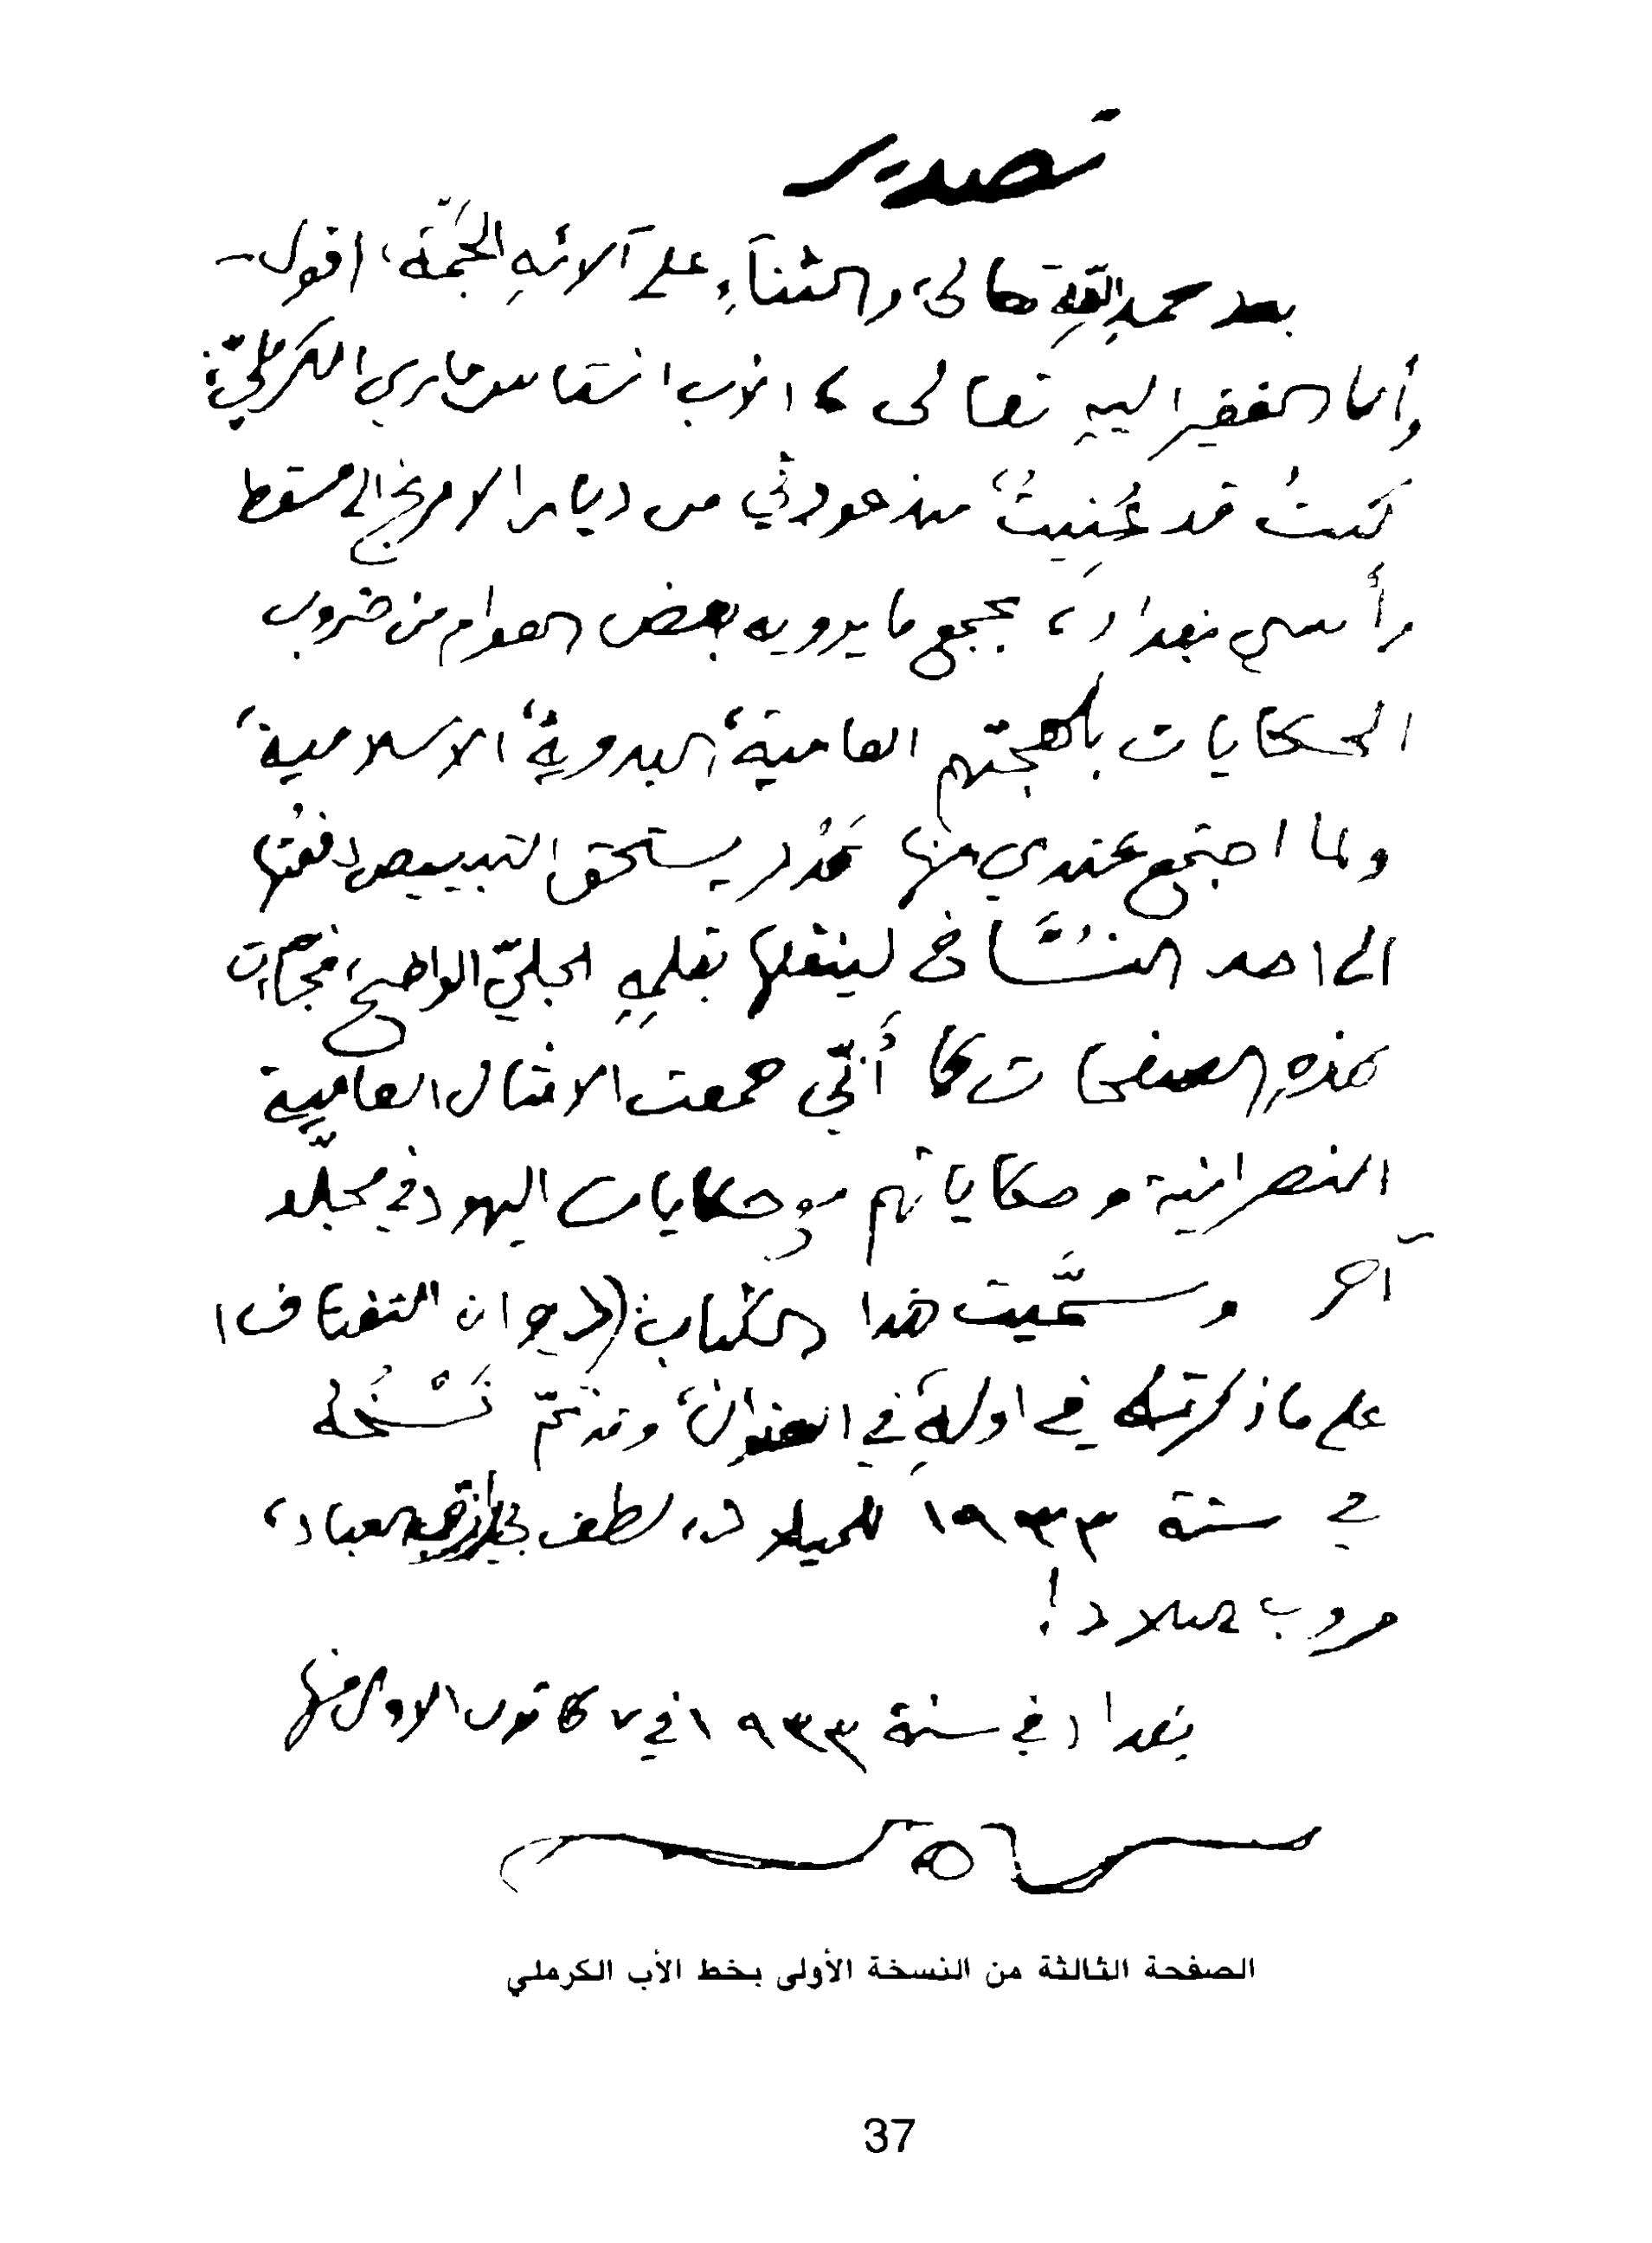 تصدير
بعد حمدِ اللّٰهِ تعالى، والثناءِ على آلائهِ الجمَّة، اقول
وأنا الفقير اليهِ تعالى، الاب انستاس ماري الكرمليّ:
كنتُ قد عُنِيتُ، منذ عودتي من ديار الافرنج الى مسقط
رأسي بغداد، بجمع ما يرويه بعض العوام من ضروب
الحكايات بلهجتهم العامية، البدوية، الاسلامية،
ولما اجتمع عندي منها قَدْر يستحق التبييض دفعتُها
الى احد النُسَّاخ لينقلها بقلمِهِ الجليّ الواضح، فجاءت
هذهِ الصفحات كما أَنّي جمعت الامثال العامّية
النصرانية وحكاياتهم وحكايات اليهود في مجلّد
آخر وسمَّيت هذا الكتاب: (ديوان التفتاف)
على ما ذكرته في اولهِ، في العنوان، وقد تمّ نَسْخُه
في سنة ١٩٣٣ للميلاد، لطف العباد،
ورب البلاد!
بغداد في سنة ١٩٣٣ في ٧ كانون الاول منها
الصفحة الثالثة من النسخة الأولى بخط الأب الكرملي
37